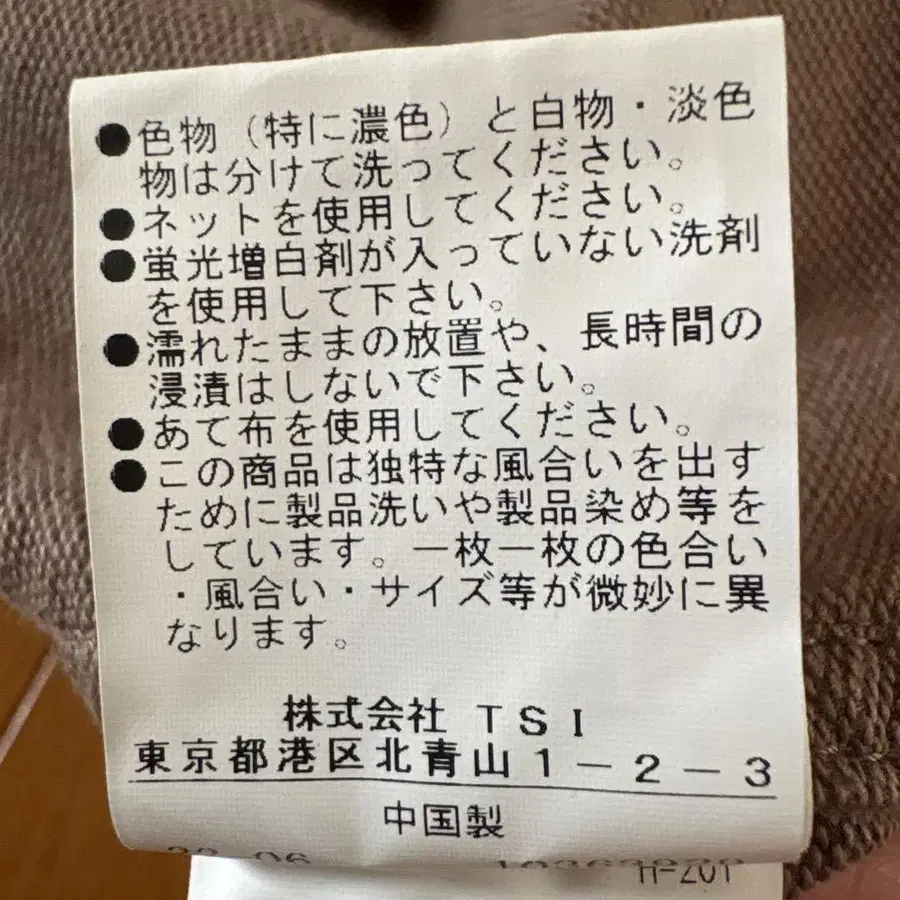 ●色物（特に濃色）と白物・淡色
物は分けて洗ってください。
●ネットを使用してください。
●蛍光増白剤が入っていない洗剤
を使用して下さい。
●濡れたままの放置や、長時間の
浸漬はしないで下さい。
●あて布を使用してください。
●この商品は独特な風合いを出す
ために製品洗いや製品染め等を
しています。一枚一枚の色合い
・風合い・サイズ等が微妙に異
なります。
株式会社 TSI
東京都港区北青山1－2－3
中国製